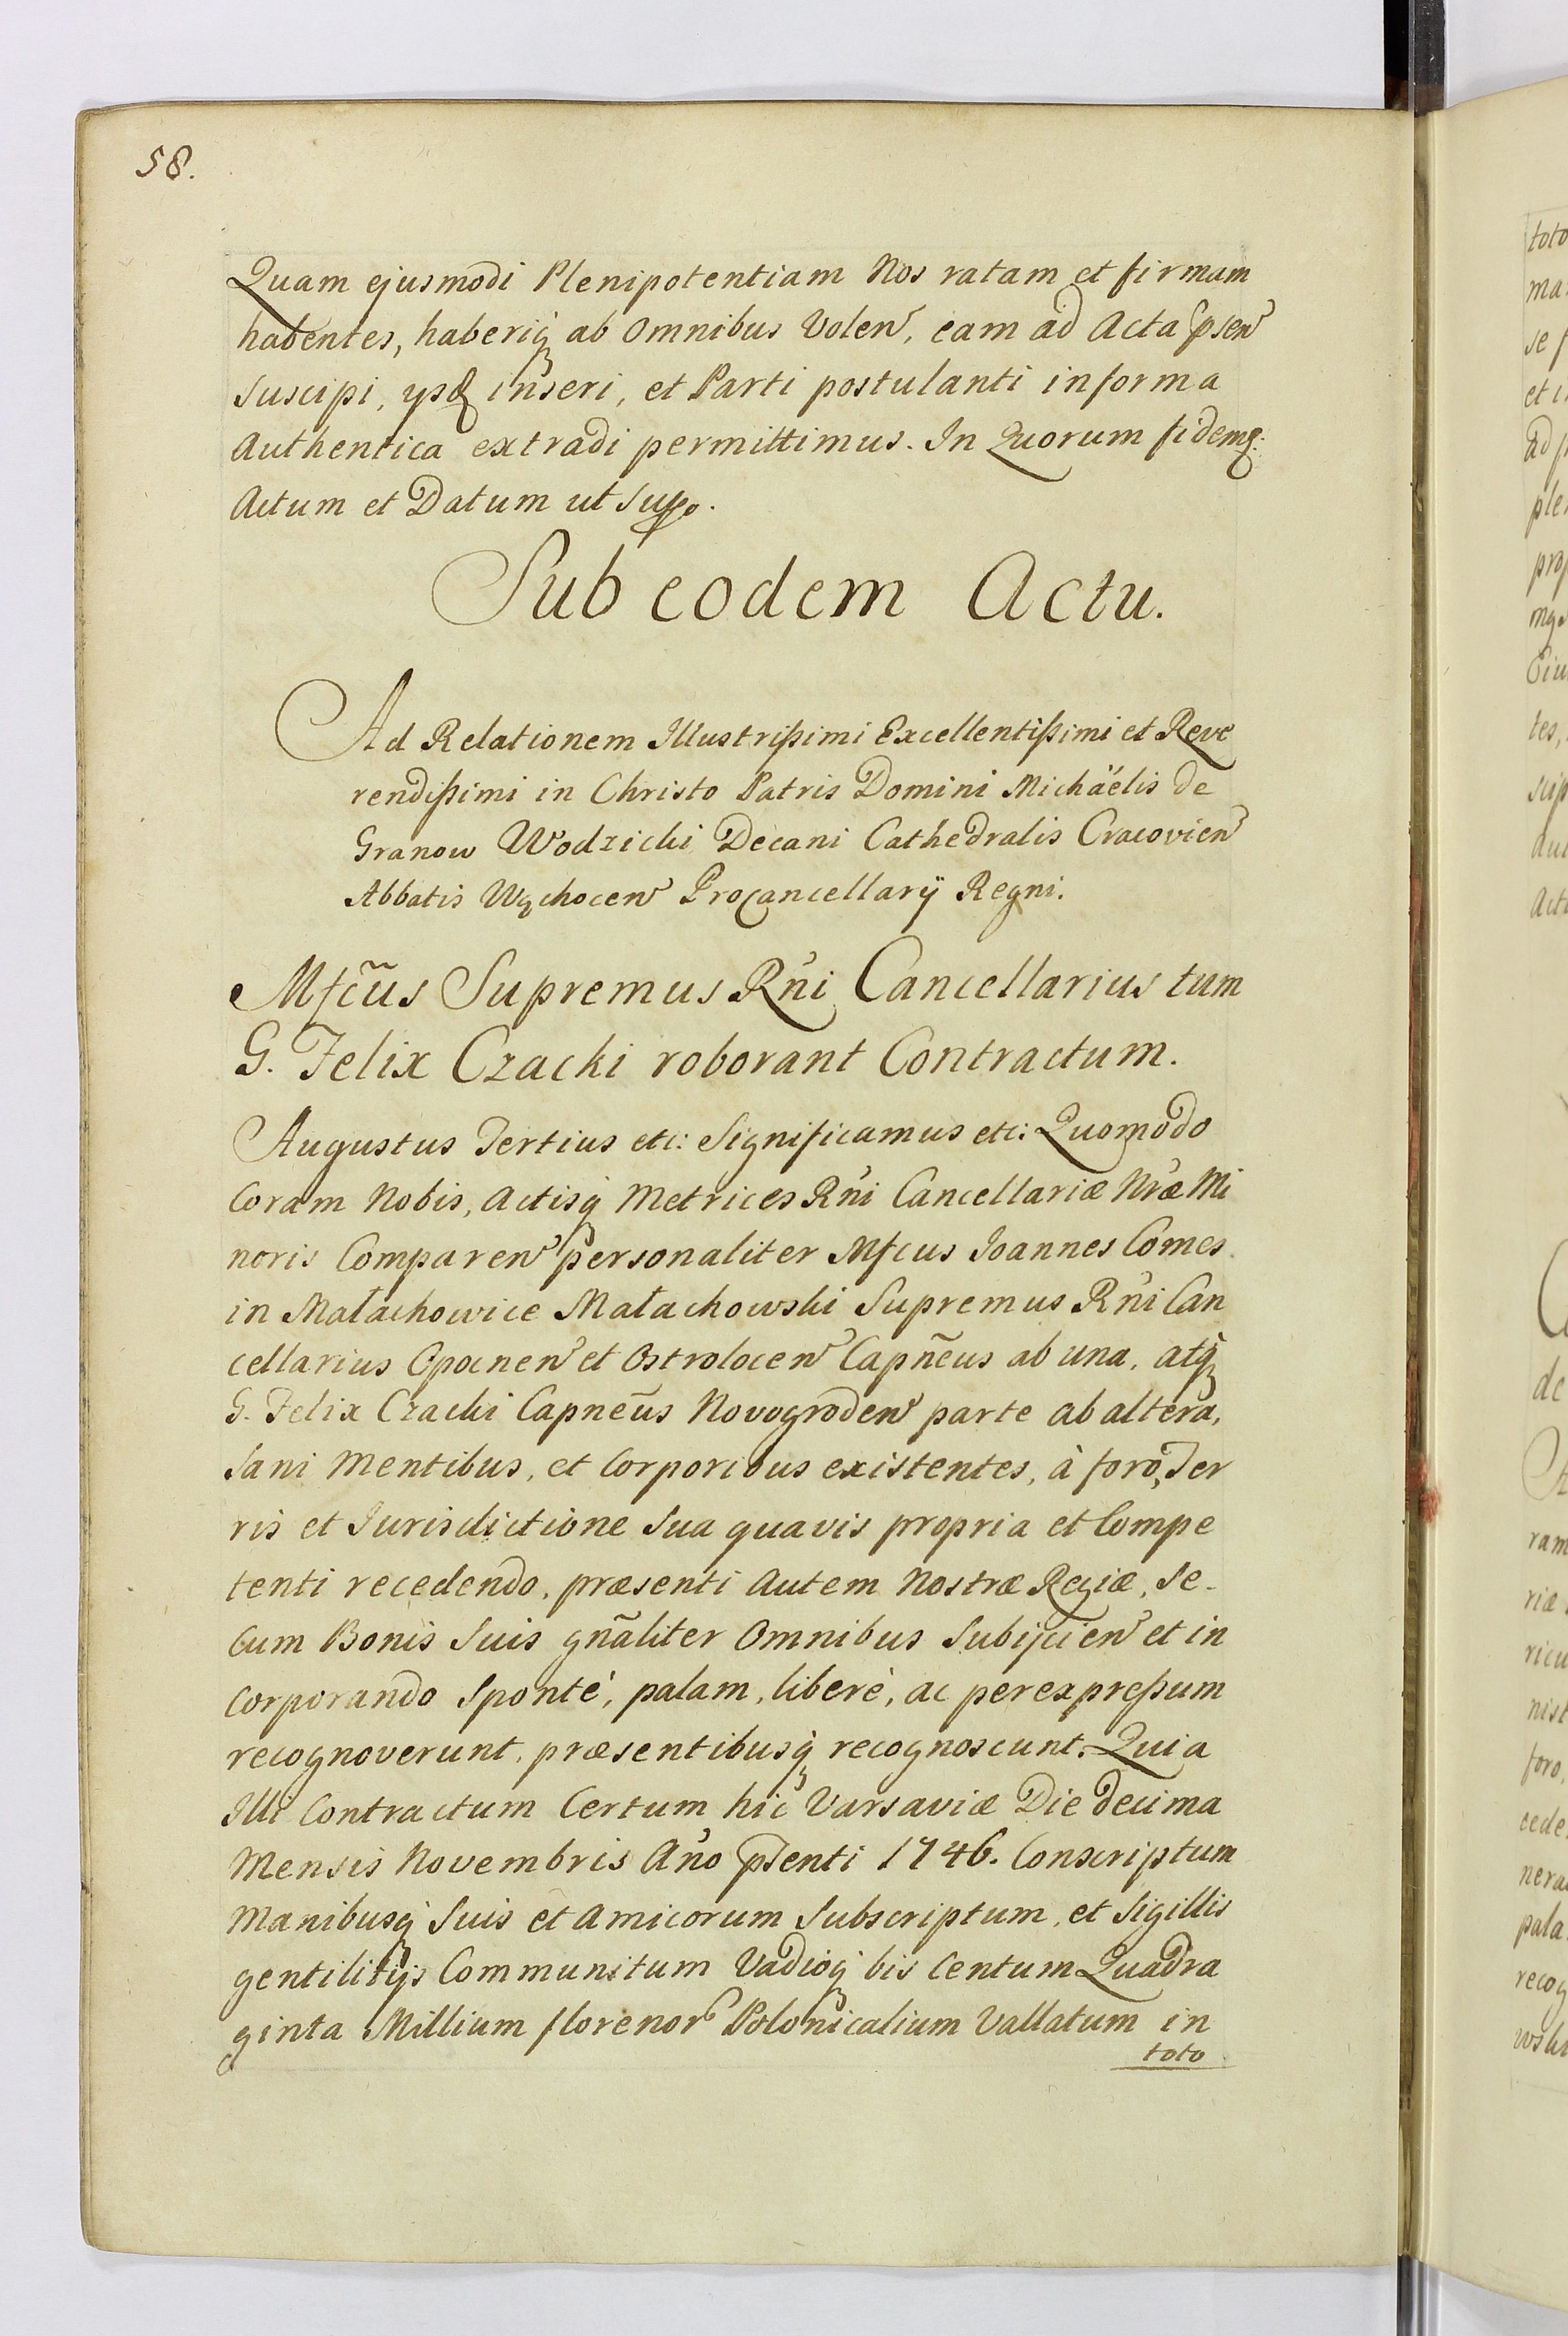 58.
Quam ejusmodi Plenipotentiam Nos ratam et firmam
habentes, haberiq; ab Omnibus Volen, eam ad Acta psen
Suscipi, ysq; inseri, et Parti postulanti in forma
Authentica extradi permittimus. In Quorum fidemq:
Actum et Datum ut Supo.
Sub eodem Actu.
Ad Relationem Illustrißimi Excellentißimi et Reve
rendißimi in Christo Patris Domini Michäelis de
Granow Wodzicki Decani Cathedralis Cracovien
Abbatis Wąchocen ProCancellarÿ Regni.
Mfcũs Supremus Rn̓i Cancellarius tum
G. Felix Czacki roborant Contractum.
Augustus Tertius etc: Significamus etc: Quomodo
Coram Nobis, Actisq; Metrices Rn̓i Cancellariæ Nr̓æ Mi
noris Comparen personaliter Mfcus Joannes Comes
in Małachowice Małachowski Supremus Rn̓i Can
cellarius Opocnen et Ostrolocen Capñeus ab una, atq;
G. Felix Czacki Capneũs Novogroden parte ab altera,
Sani Mentibus, et Corporibus existentes, à foro, Ter
ris et Jurisdictione Sua quavis propria et Compe
tenti recedendo, præsenti Autem Nostræ Regiæ, Se-
Cum Bonis Suis gñaliter Omnibus Subijcien et in
Corporando Sponté, palam, liberè, ac per expreßum
recognoverunt, præsentibusq; recognoscunt. Quia
Illi Contractum Certum hic Varsaviæ Die decima
Mensis Novembris An̓o psenti 1746. Conscriptum
Manibusq; Suis et Amicorum Subscriptum, et Sigillis
gentilitijs Communitum Vadioq; bis Centum Quadra
ginta Millium florenor Polonicalium Vallatum in
toto